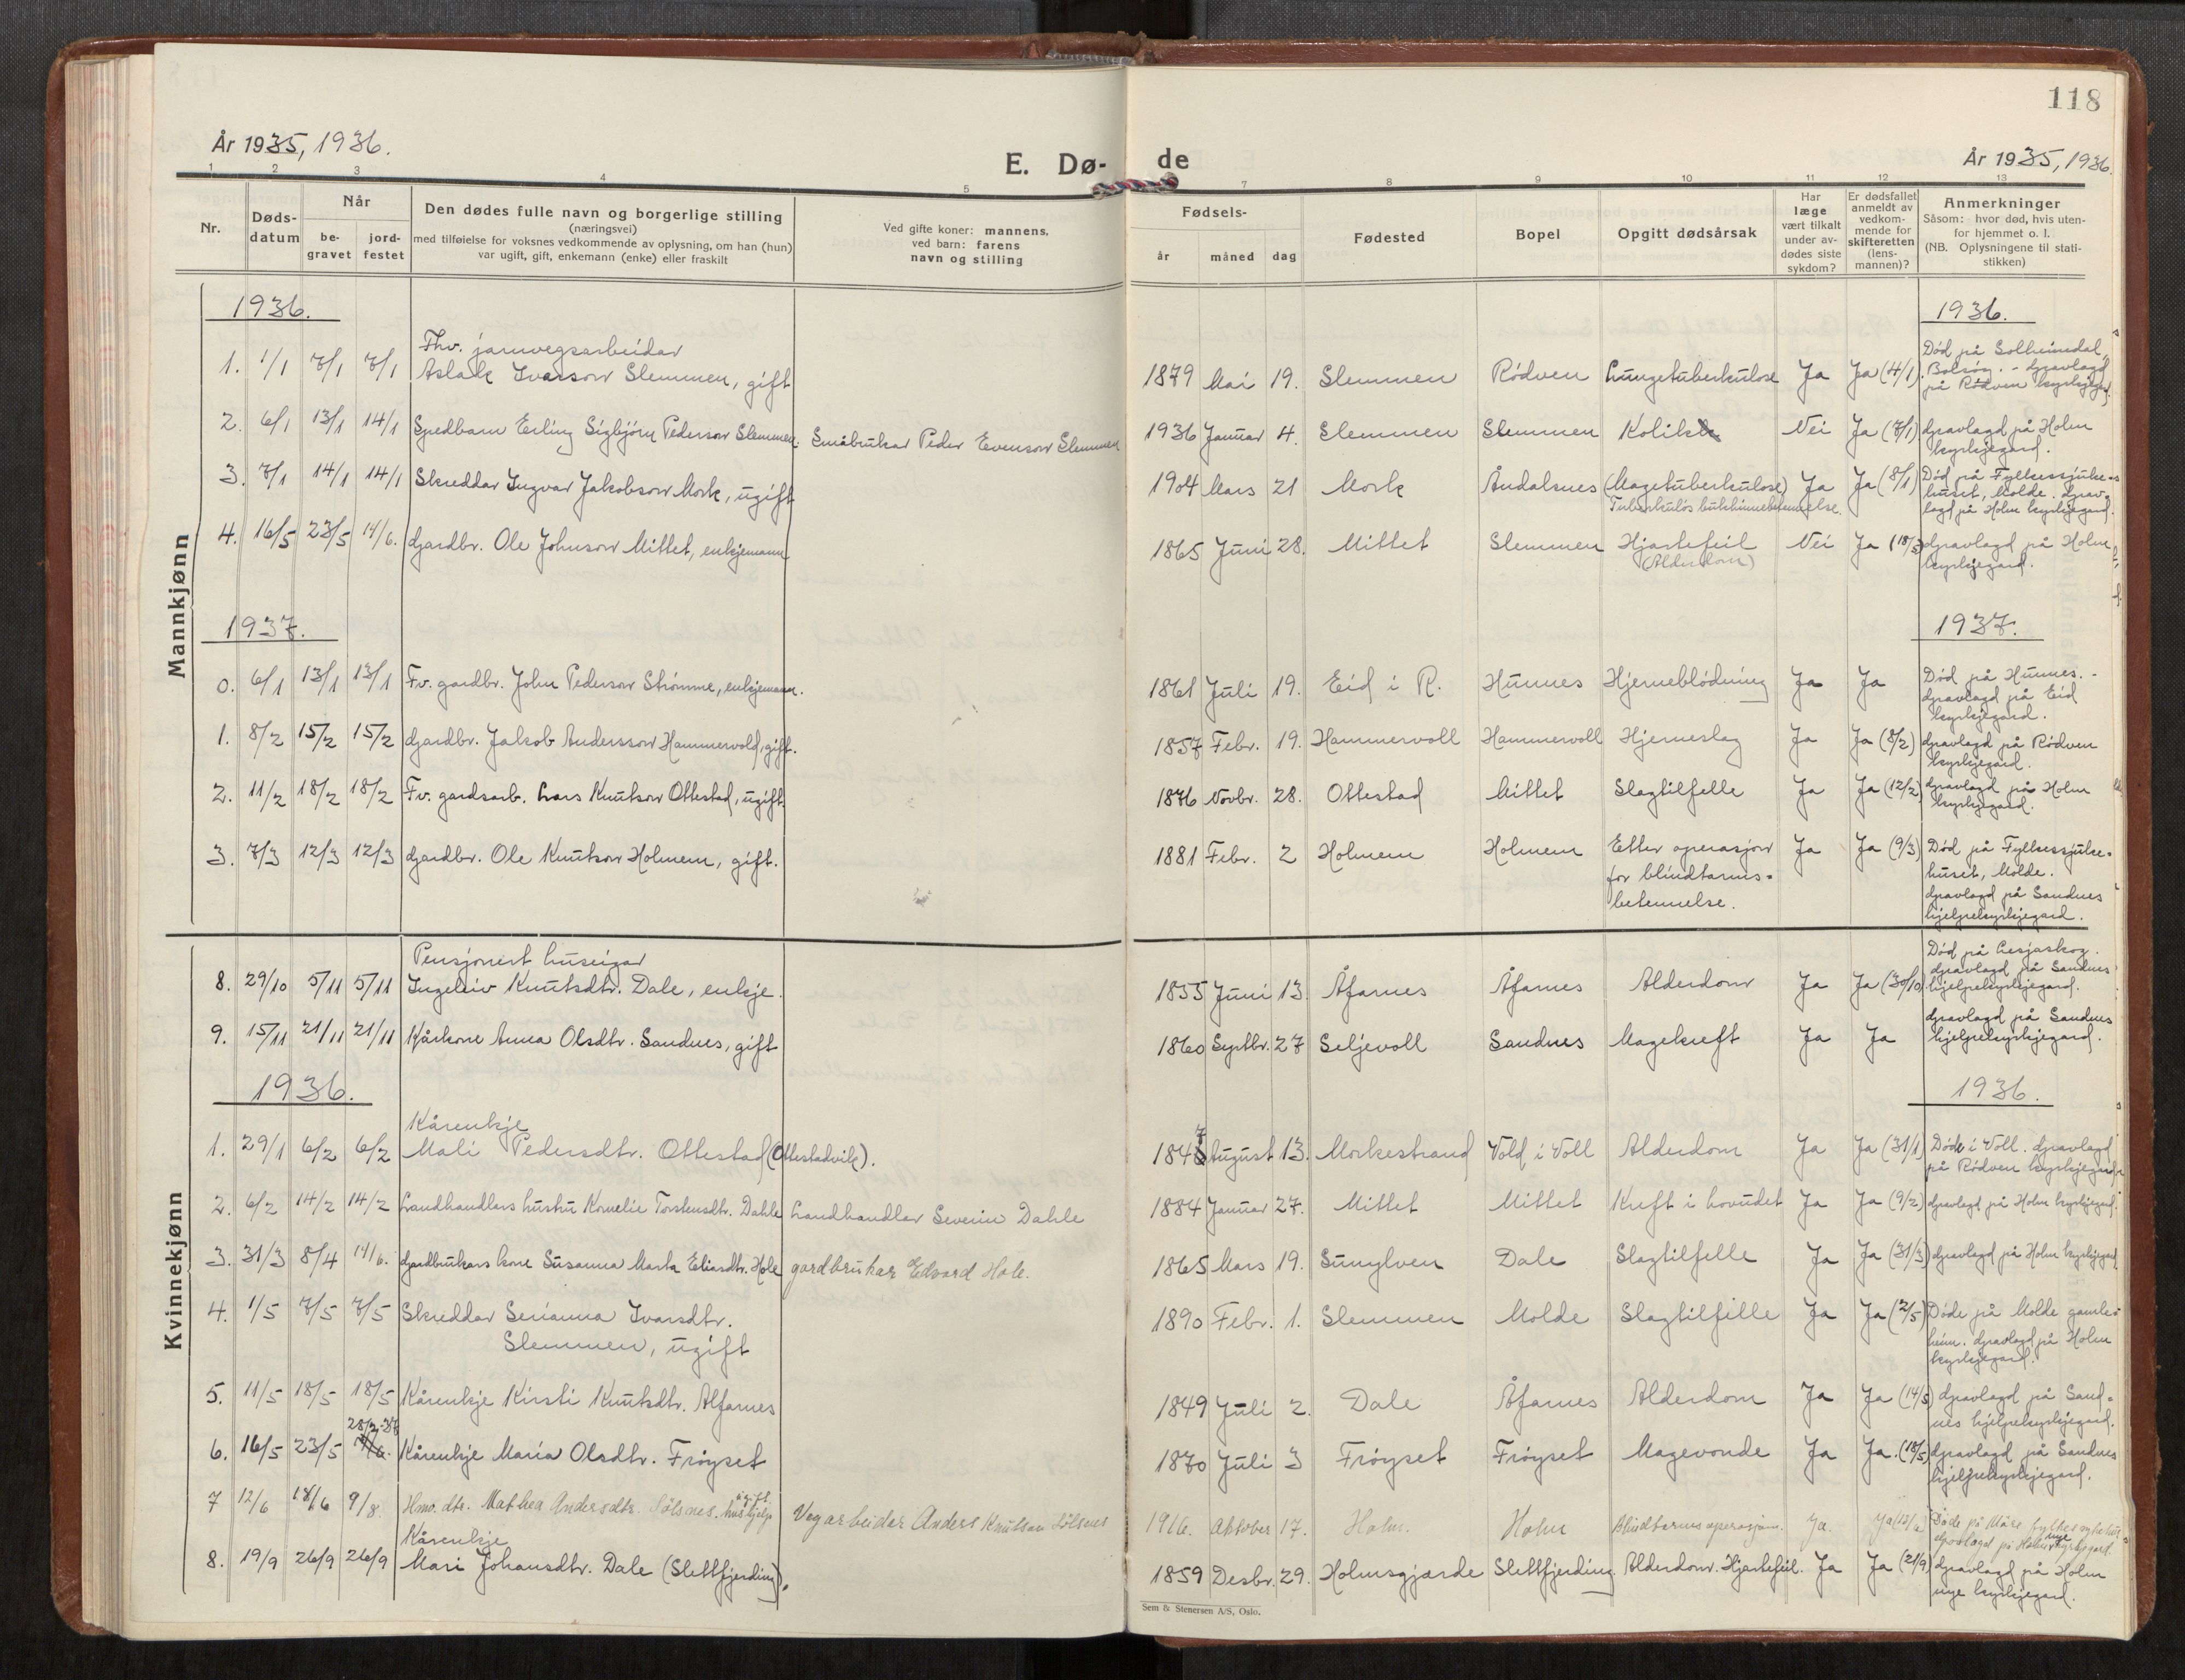 118
År 1935, 1936.
E. Dø-
de
År 1935, 1936.
1 2 3 4 5 7 8 9 10 11 12 13
Nr.
Døds-
datum
Når
be-
gravet
jord-
festet
Den dødes fulle navn og borgerlige stilling
(næringsvei)
med tilføielse for voksnes vedkommende av oplysning, om han (hun)
var ugift, gift, enkemann (enke) eller fraskilt
Ved gifte koner: mannens,
ved barn: farens
navn og stilling
Fødsels-
år måned dag
Fødested
Bopel
Opgitt dødsårsak
Har
læge
vært tilkalt
under av-
dødes siste
sykdom?
Er dødsfallet
anmeldt av
vedkom-
mende for
skifteretten
(lens-
mannen)?
Anmerkninger
Såsom: hvor død, hvis uten-
for hjemmet o. l.
(NB. Oplysningene til stati-
stikken)
Mannkjønn
1936. 1936.
Fhv. jarnvegsarbeidar
1. 1/1 7/1 7/1 Aslak Ivarson Slemmen, gift 1879 Mai 19. Slemmen Rödven Lungetuberkulose Ja Ja (4/1). Død på Solheimsdal, Bolsöy. - Gravlagd på Rödven kyrkjegard.
2. 6/1 13/1 14/1 Spedbarn Erling Sigbjörn Pederson Slemmen. Småbrukar Peder Evenson Slemmen 1936 Januar 4. Slemmen Slemmen Kolik Nei Ja (7/1) Gravlagd på Holm kyrkjegard.
3. 7/1 14/1 14/1 Skreddar Ingvar Jakobson Mork, ugift 1904 Mars 21 Mork Åndalsnes (Magetuberkulose) Tuberkulös bukhinnebetennelse. Ja Ja (8/1) Död på Fylkessjuke=huset, Molde. Grav=lagd på Holm kyrkjegard.
4. 16/5 23/5 14/6. Gardbr. Ole Johnson Mittet, enkjemann 1865 Juni 28. Mittet Slemmen Hjartefeil (Alderdom) Nei Ja (18/5) Gravlagd på Holm kyrkjegard.
1937. 1937.
0. 6/1 13/1 13/1 Fv. gardbr. John Pederson Strömme, enkjemann. 1861 Juli 19. Eid i R. Hunnes Hjerneblödning Ja Ja Död på Hunnes. - Gravlagd på Eid kyrkjegard.
1. 8/2 15/2 15/2 Gardbr. Jakob Andersson Hammervold, gift. 1857 Febr. 19. Hammervoll Hammervoll Hjerneslag Ja Ja (8/2) Gravlagd på Rödven kyrkjegard.
2. 11/2 18/2 18/2 Fv. gardsarb. Lars Knutson Ottestad, ugift. 1876 Novbr. 28. Ottestad Mittet Slagtilfelle Ja Ja (12/2) Gravlagd på Holm kyrkjegard.
3. 7/3 12/3 12/3 Gardbr. Ole Knutson Holmem, gift. 1881 Febr. 2 Holmem Holmem Etter operasjon for blindtarms=betennelse. Ja Ja (9/3) Død på Fylkessjuke=huset, Molde. Gravlagd på Sandnes hjelpekyrkjegard.
Kvinnekjønn
Pensjonert huseigar
8. 29/10 5/11 5/11 Ingeleiv Knutsdtr. Dale, enkje. 1855 Juni 13. Åfarnes Åfarnes Alderdom Ja Ja (30/10) Död på Hesjaskog. Gravlagd på Sandnes hjelpekyrkjegard.
9. 15/11 21/11 21/11 Kårkone Anna Olsdtr. Sandnes, gift 1860 Septbr. 27 Seljevoll Sandnes Magekreft Ja Ja Gravlagd på Sandnes hjelpekyrkjegard.
1936. 1936.
Kårenkje
1. 29/1 6/2 6/2 Mali Pedersdtr. Ottestad (Ottestadvik). 1847 August 13. Morkestrand Vold i Voll Alderdom Ja Ja (31/1) Döde i Voll. Gravlagd på Rödven kyrkjegard.
2. 6/2 14/2 14/2 Landhandlars hustru Kornelie Torstensdtr. Dahle Landhandlar Severin Dahle 1884 Januar 27. Mittet Mittet Kreft i hovudet Ja Ja (9/2) Gravlagd på Holm kyrkjegard.
3. 31/3 8/4 14/6. Gardbrukars kone Susanna Marta Eliasdtr. Hole gardbrukar Edvard Hole. 1865 Mars 19. Sunnylven Dale Slagtilfelle Ja Ja (31/3) Gravlagd på Holm kyrkjegard
4. 1/5 7/5 7/5 Skreddar Serianna Ivarsdtr. Slemmen, ugift 1890 Febr. 1. Slemmen Molde Slagtilfille Ja Ja (2/5) Døde på Molde gamle=heim. Gravlagd på Holm kyrkjegard.
5. 11/5 18/5 18/5 Kårenkje Kirsti Knutsdtr. Alfarnes 1849 Juli 2. Dale Åfarnes Alderdom Ja Ja (14/5) Gravlagd på Sand=nes hjelpekyrkjegard.
6. 16/5 23/5 28/2-37 Kårenkje Maria Olsdtr. Fröyset 1870 Juli 3 Fröyset Fröyset Magevonde Ja Ja. (18/5) Gravlagd på Sandnes hjelpekyrkjegard.
7 12/6 18/6 9/8. Hmo. dtr. Mathea Andersdtr. Sölsnes. ugift hushjelp Vegarbeidar Anders Knutson Sölsnes 1916. Oktober 17. Holm. Holm Blindtarmsoperasjon. Ja. Ja (13/6) Døde på Möre fylkessykehus Gravlagd på Holm nye kyrkjegard.
Kårenkje
8. 19/9 26/9 26/9 Mari Johansdtr. Dale (Slettfjerding). 1859 Desbr. 29. Holmsgjærde Slettfjerding Alderdom. Hjartefeil. Ja Ja (21/9) Gravlagd på Holm nye kyrkjegard.
Sem & Stenersen A/S, Oslo.